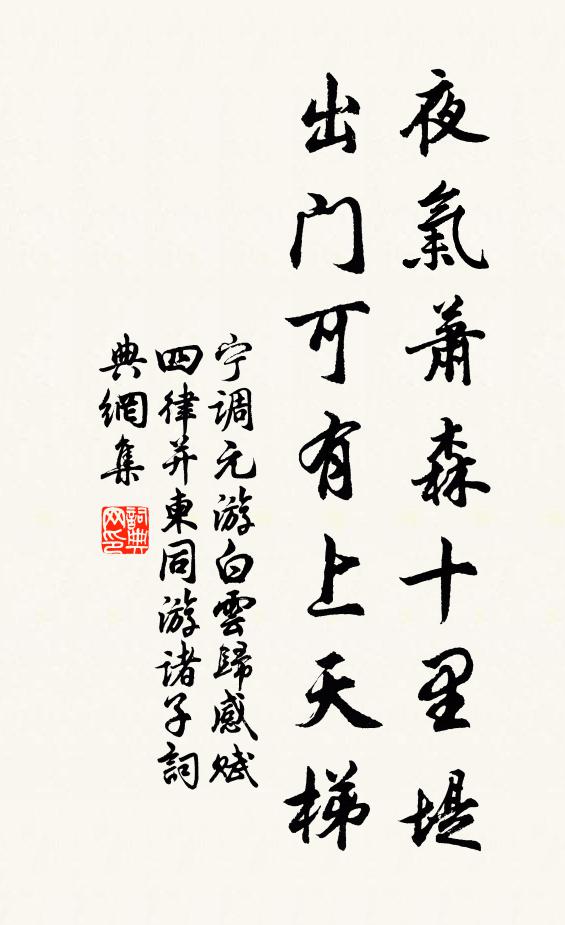 夜氣蕭森十里堤
出门可有上天梯
宁調元游白雲歸感赋
四律并東同游诸子詞
典網集
詞典网印